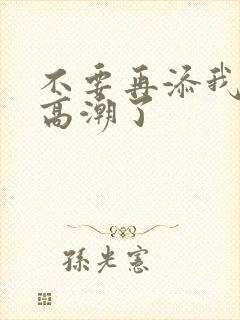 不要再添我
高潮了
孫光憲